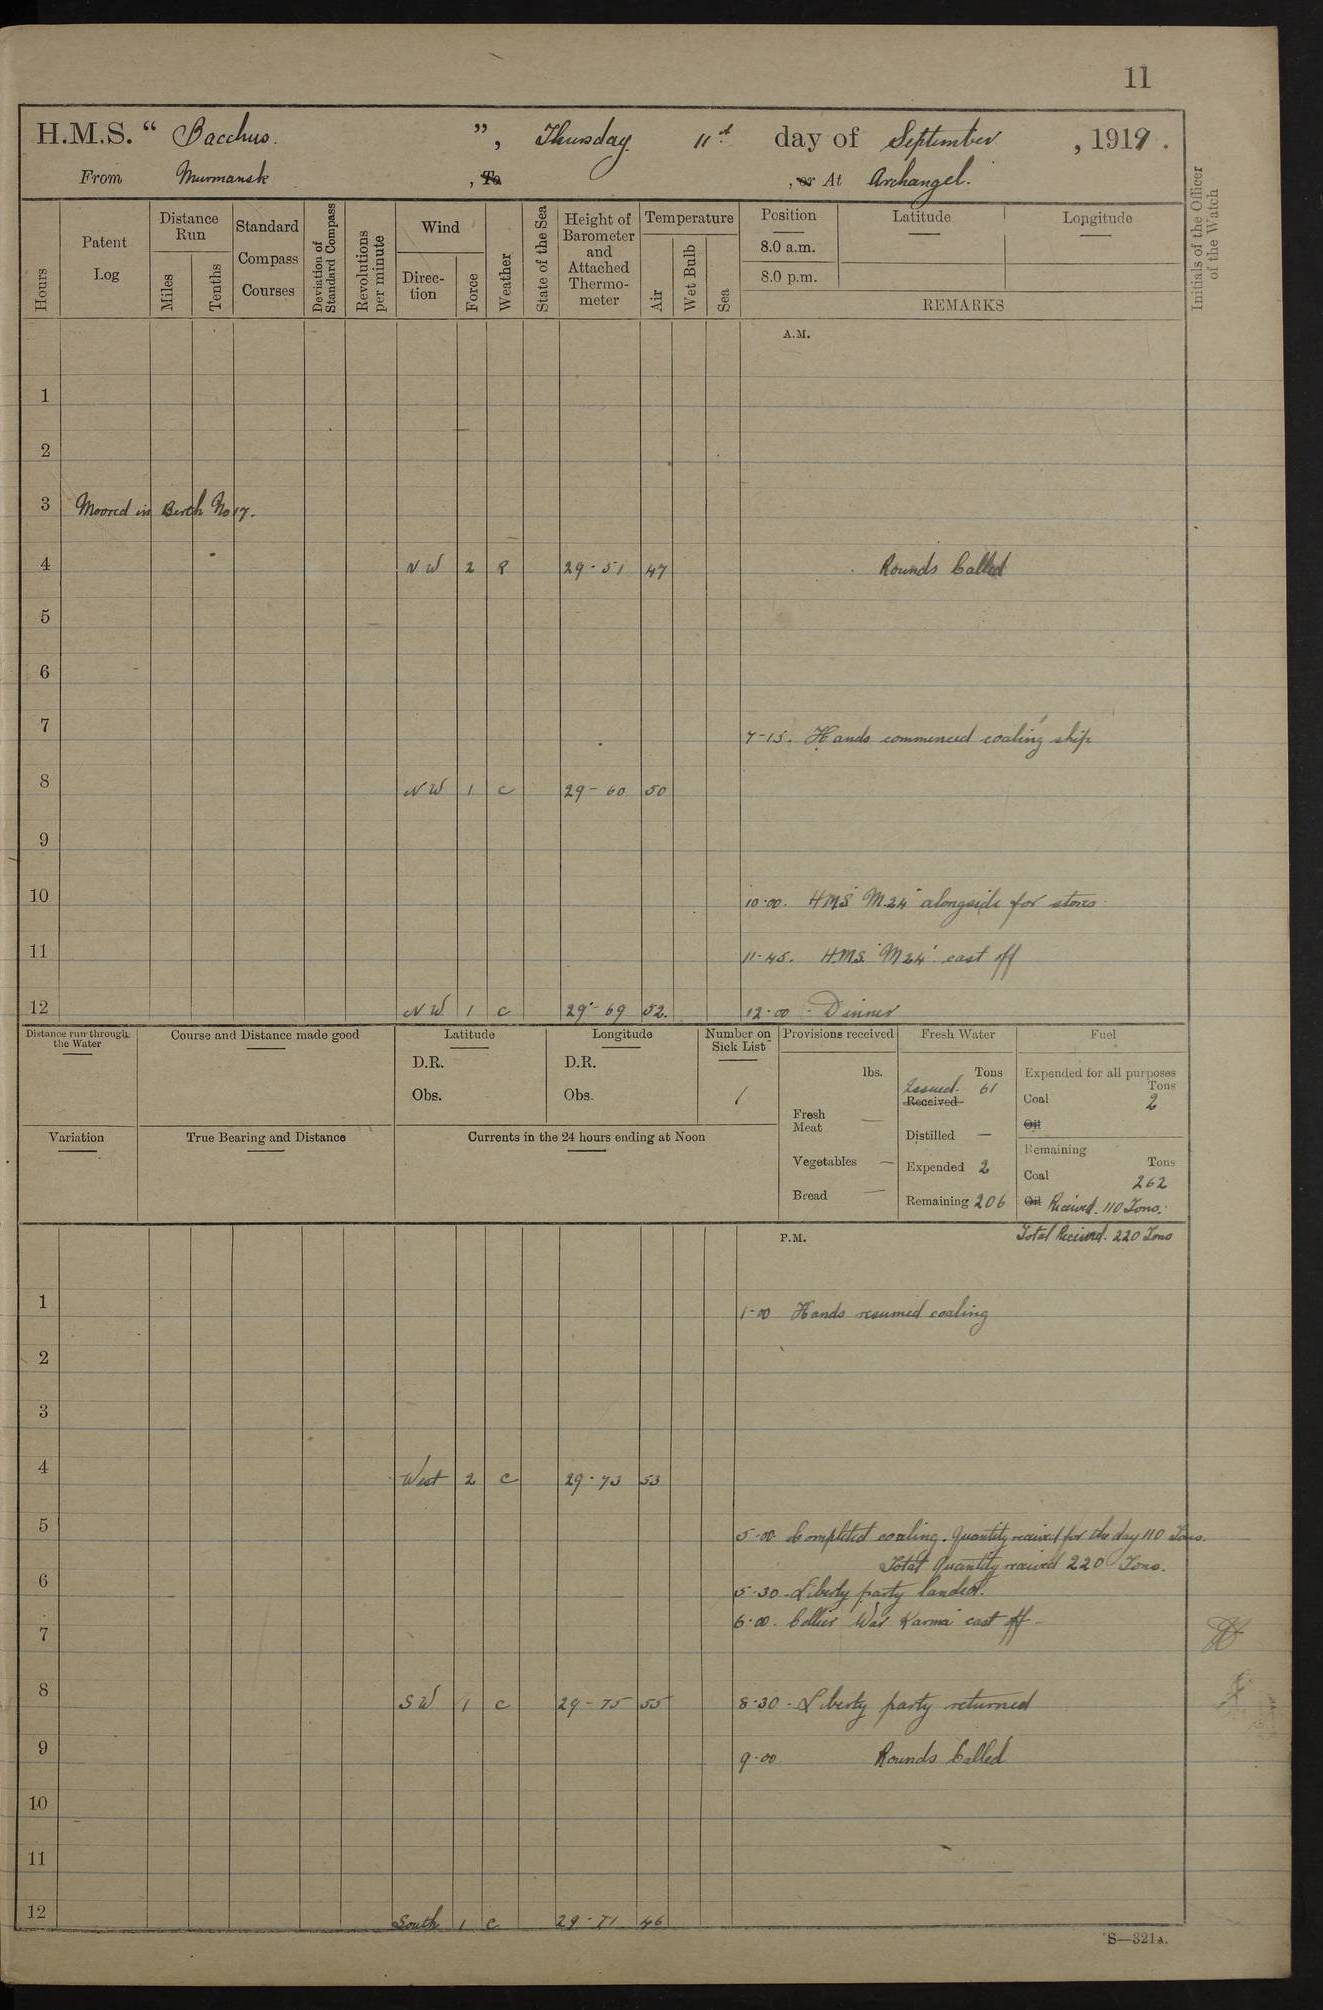 11
H.M.S. “ Bacchus. ”, Thursday 11th day of September , 1919.
From Murmansk , To , or At Archangel.
Hours
Patent Log
Distance Run
Miles
Tenths
Standard Compass Courses
Deviation of Standard Compass
Revolutions per minute
Wind
Direc- tion
Force
Weather
State of the Sea
Height of Barometer and Attached Thermo- meter
Temperature
Air
Wet Bulb
Sea
Position
8.0 a.m.
8.0 p.m.
Latitude
Longitude
REMARKS
Initials of the Officer of the Watch
A.M.
1
2
3 Moored in Berth No 17.
4 NW 2 R 29-51 47 Rounds Called
5
6
7 7-15. Hands commenced coaling ship
8 NW 1 C 29-60 50
9
10 10-00. HMS "M.24" alongside for stores
11 11-45. H.M.S. "M24" cast off
12 NW 1 C 29-69 52. 12-00 - Dinner
Distance run through the Water
Course and Distance made good
Latitude
D.R.
Obs.
Longitude
D.R.
Obs.
Number on Sick List
1
Provisions received
lbs.
Fresh Meat —
Vegetables —
Bread —
Fresh Water
Tons
Issued. 61
Received
Distilled —
Expended 2
Remaining 206
Fuel
Expended for all purposes
Tons
Coal 2
Oil
Remaining
Tons
Coal 262
Oil Received. 110 Tons.
Total Received. 220 Tons
Variation
True Bearing and Distance
Currents in the 24 hours ending at Noon
P.M.
1 1-00 Hands resumed coaling
2
3
4 West 2 C 29-73 53
5 5-00 Completed coaling. Quantity received for the day 110 Tons.
Total Quantity received 220 Tons.
6 5-30 - Liberty party landed.
6-00. Collier "War Karma" cast off -
7
8 SW 1 C 29-75 55 8-30 - Liberty party returned
9 9-00 Rounds Called
10
11
12 South 1 C 29-71 46
S—321A.